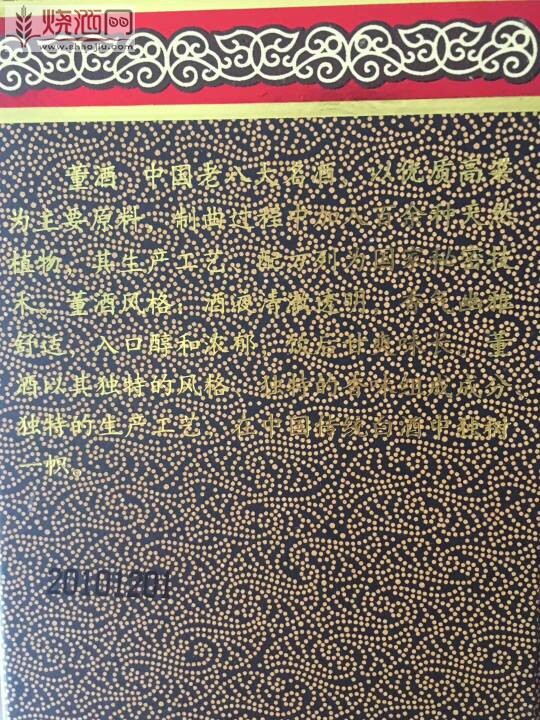 烧酒网
www.shaojiu.com
董酒 中国老八大名酒 以优质高粱
为主要原料，制曲过程中加入百余种天然
植物，其生产工艺、配方列为国家秘密技
术。董酒风格：酒液清澈透明，香气幽雅
舒适，入口醇和浓郁，饭后甘爽味长。董
酒以其独特的风格、独特的香味组成成分、
独特的生产工艺、在中国传统白酒中独树
一帜。
20101201